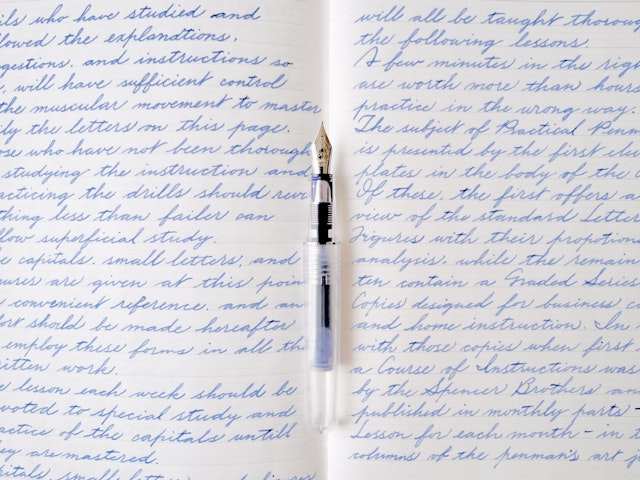 ils who have studied and
llowed the explandtions,
gestions, and instructions so
, will have sufficient control
the muscular movement to master
ily the letters on this page.
ose who have not been thorough
studying the instruction and
acticing the drills should rev
thing less than failer can
llow superficial study.
e capitals, small letters, and
gures are given at this poin
convenient reference, and an
fort should be made hereafter
employ these forms in all the
ritten work.
e lesson each week should be
voted to special study and
actice of the capitals untill
hey are mastered.
pitals, small letters, and figures
will all be taught thoroug
the following lessons.
A few minutes in the right
are worth more than hours
practice in the wrong way.
The subject of Practical Penm
is presented by the first elev
plates in the body of the C
Of these, the first offers a
view of the standard Letter
Figures with their propotion
analysis, while the remain
ten contain a Graded Series
Copies designed for business c
and home instruction. In
with those copies when first
a Course of Instructions was
by the Spencer Brothers an
published in monthly parts -
Lesson for each month - in t
columns of the penman's art j